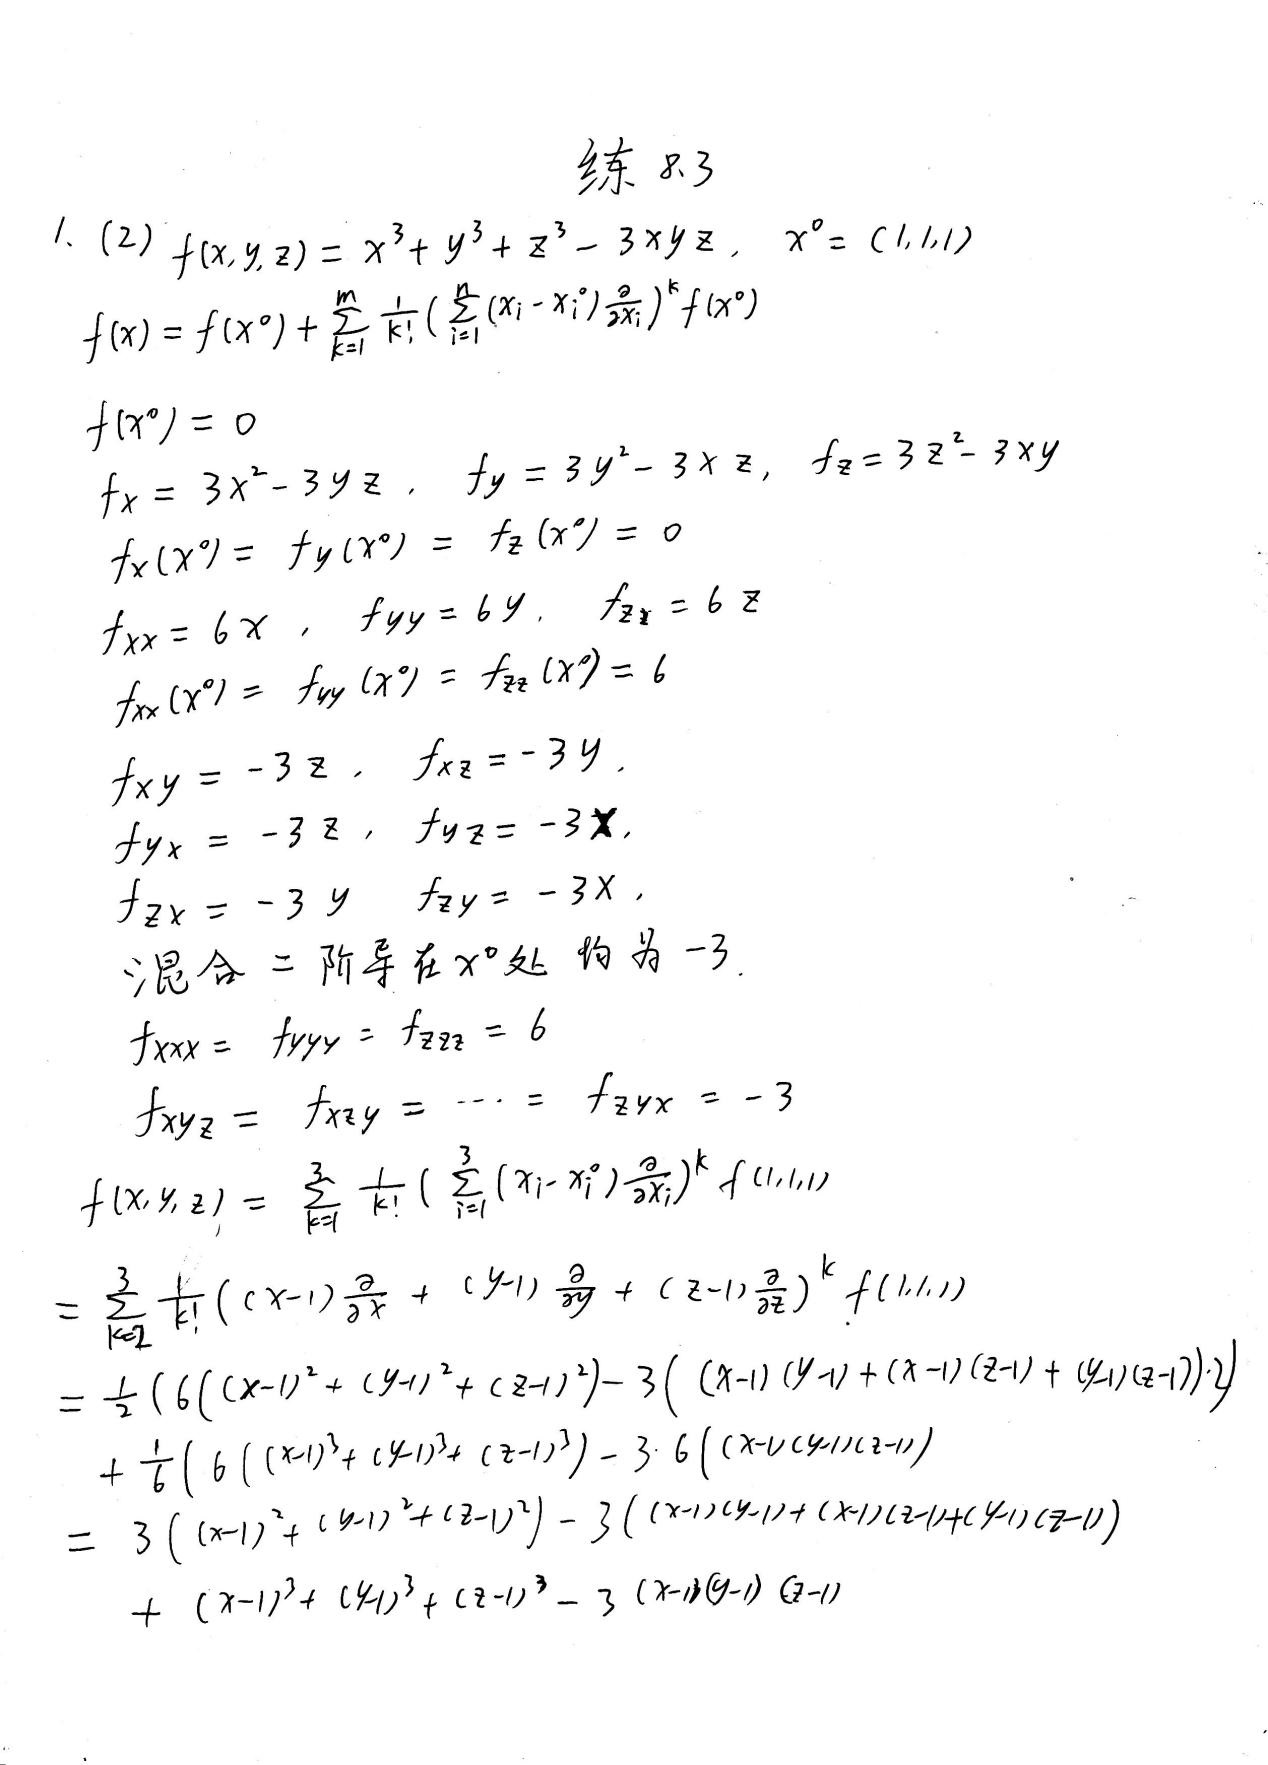 练 8.3
1. (2) f(x,y,z) = x³ + y³ + z³ - 3xyz, x⁰ = (1,1,1)
f(x) = f(x⁰) + \sum_{k=1}^{m} \frac{1}{k!} ( \sum_{i=1}^{n} (x_i - x_i^0) \frac{∂}{∂x_i} )^k f(x⁰)
f(x⁰) = 0
fx = 3x² - 3yz, fy = 3y² - 3xz, fz = 3z² - 3xy
fx(x⁰) = fy(x⁰) = fz(x⁰) = 0
fxx = 6x, fyy = 6y, fzz = 6z
fxx(x⁰) = fyy(x⁰) = fzz(x⁰) = 6
fxy = -3z, fxz = -3y,
fyx = -3z, fyz = -3x,
fzx = -3y fzy = -3x,
混合二阶导在x⁰处均为-3.
fxxx = fyyy = fzzz = 6
fxyz = fxzy = ---- = fzyx = -3
f(x,y,z) = \sum_{k=1}^{3} \frac{1}{k!} ( \sum_{i=1}^{3} (x_i - x_i^0) \frac{∂}{∂x_i} )^k f(1,1,1)
= \sum_{k=2}^{3} \frac{1}{k!} ( (x-1) \frac{∂}{∂x} + (y-1) \frac{∂}{∂y} + (z-1) \frac{∂}{∂z} )^k f(1,1,1)
= \frac{1}{2} ( 6((x-1)² + (y-1)² + (z-1)²) - 3( (x-1)(y-1) + (x-1)(z-1) + (y-1)(z-1))·2)
+ \frac{1}{6} ( 6((x-1)³ + (y-1)³ + (z-1)³) - 3·6((x-1)(y-1)(z-1))
= 3( (x-1)² + (y-1)² + (z-1)²) - 3( (x-1)(y-1) + (x-1)(z-1) + (y-1)(z-1))
+ (x-1)³ + (y-1)³ + (z-1)³ - 3(x-1)(y-1)(z-1)